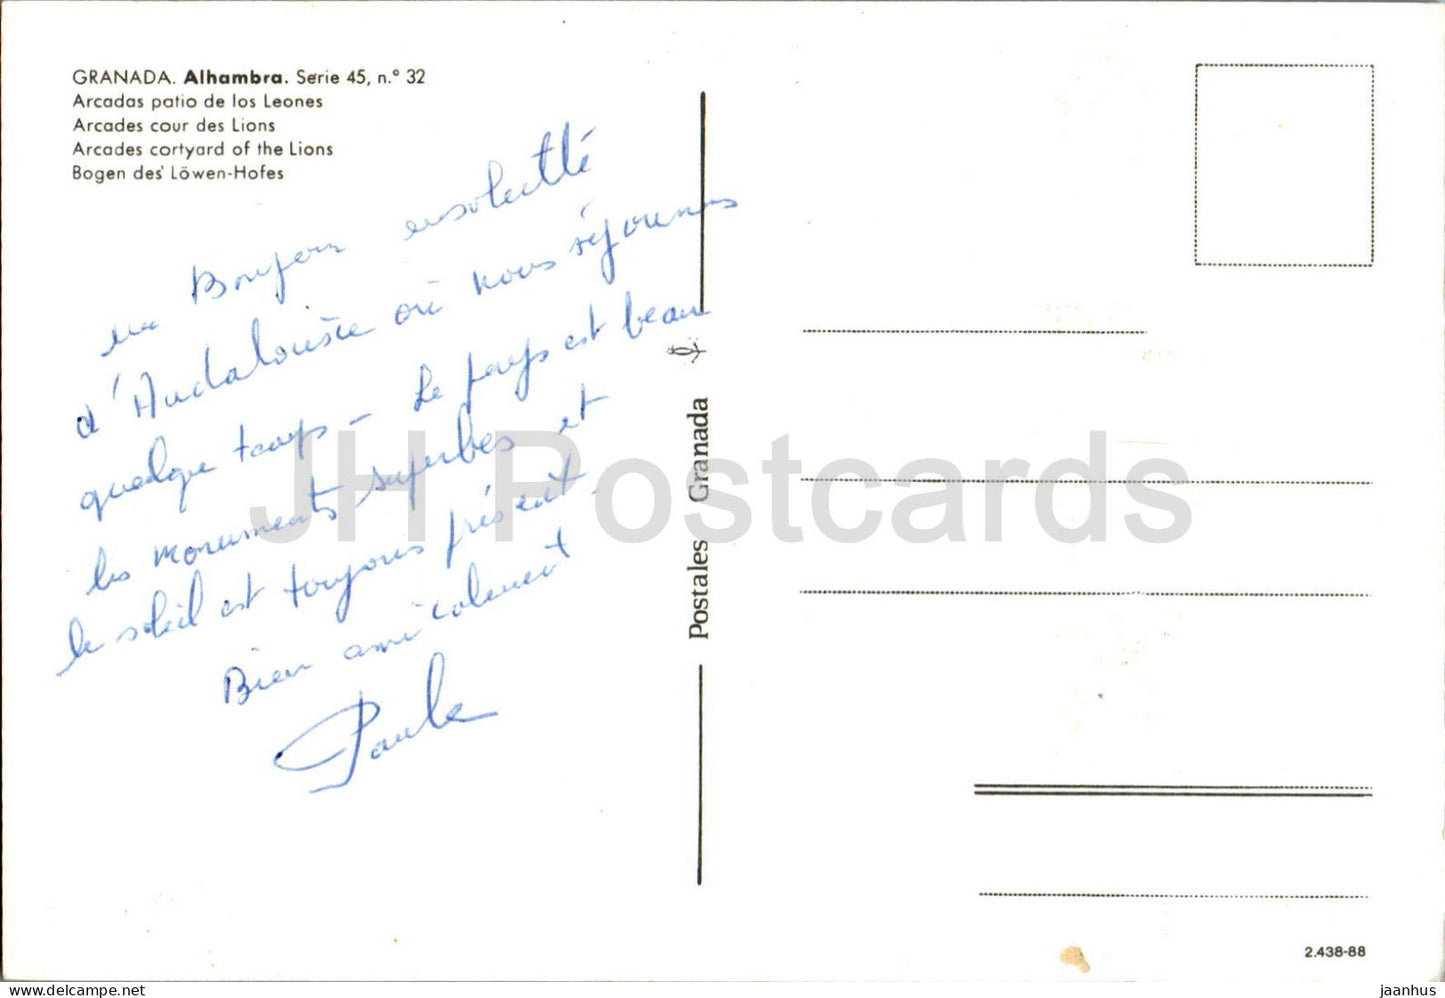 GRANADA. Alhambra. Serie 45, n.° 32
Arcadas patio de los Leones
Arcades cour des Lions
Arcades cortyard of the Lions
Bogen des' Löwen-Hofes
un Bonjour ensoleillé
d'Andalousie où nous séjournons
quelque temps - Le pays est beau
les monuments superbes et
le soleil est toujours présent.
Bien amicalement
Paule
Postales Granada
JH Postcards
2.438-88
delcampe.net
jaanhus